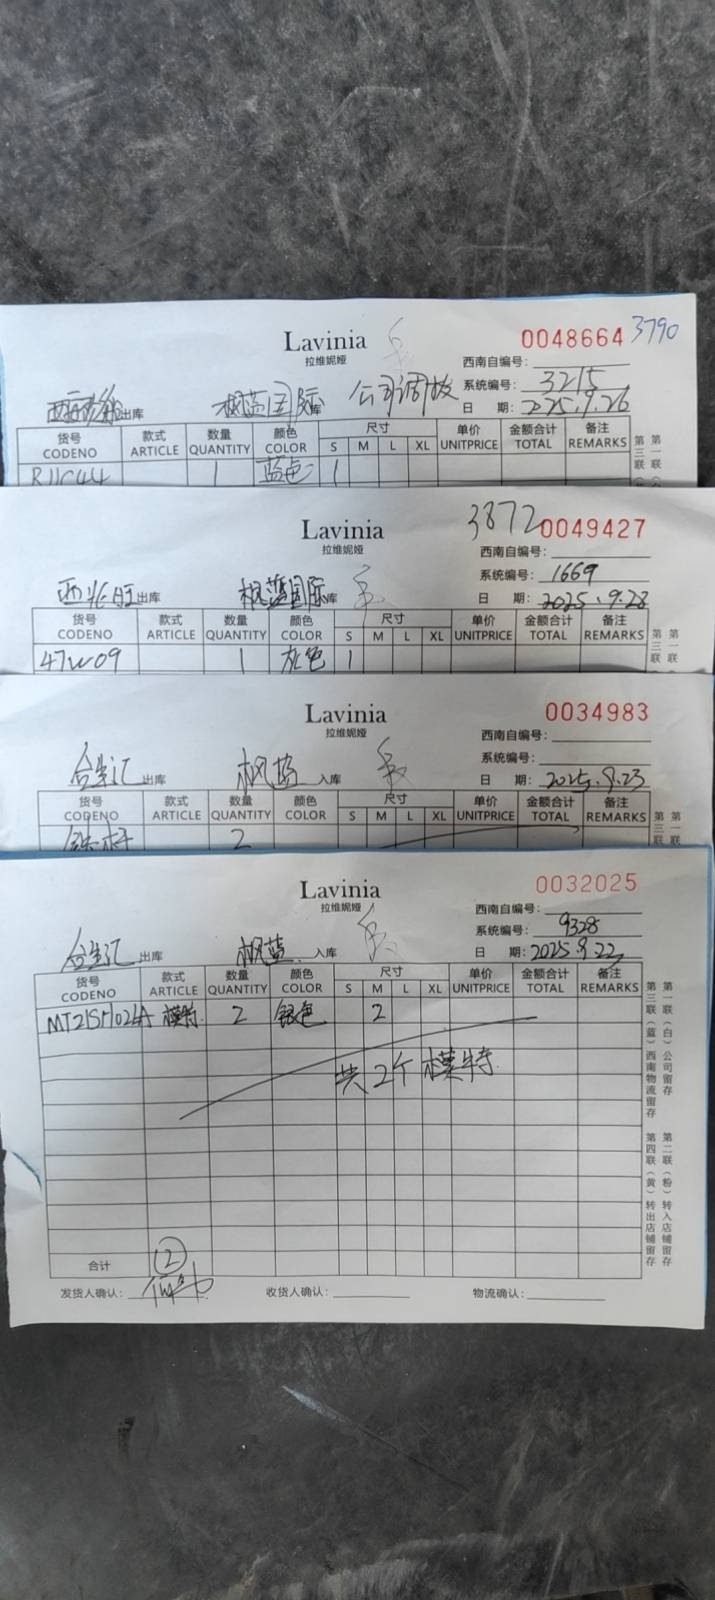 Lavinia
拉维妮娅
0048664 3790
西南自编号:
系统编号: 3215
出库 枫蓝国际 库 公司调拨 日 期: 2025.9.26
货号 款式 数量 颜色 尺寸 单价 金额合计 备注
CODENO ARTICLE QUANTITY COLOR S M L XL UNITPRICE TOTAL REMARKS
R11C44 1 蓝色 1
第一联(
第三联(
Lavinia
拉维妮娅
3872 0049427
西南自编号:
系统编号: 1669
西兆旺 出库 枫蓝国际 库 日 期: 2025.9.28
货号 款式 数量 颜色 尺寸 单价 金额合计 备注
CODENO ARTICLE QUANTITY COLOR S M L XL UNITPRICE TOTAL REMARKS
47W09 1 灰色 1
第一联
第三联(
Lavinia
拉维妮娅
0034983
西南自编号:
系统编号:
合生汇 出库 枫蓝 入库 日 期: 2025.9.23
货号 款式 数量 颜色 尺寸 单价 金额合计 备注
CODENO ARTICLE QUANTITY COLOR S M L XL UNITPRICE TOTAL REMARKS
2
第一联
第三联
Lavinia
拉维妮娅
0032025
西南自编号:
系统编号: 9328
合生汇 出库 枫蓝 入库 日 期: 2025.9.22
货号 款式 数量 颜色 尺寸 单价 金额合计 备注
CODENO ARTICLE QUANTITY COLOR S M L XL UNITPRICE TOTAL REMARKS
模特 2 银色 2
共2个模特
合计 2
发货人确认: 收货人确认: 物流确认:
第一联(白)公司留存 第二联(粉)转入店铺留存
第三联(蓝)西南物流留存 第四联(黄)转出店铺留存